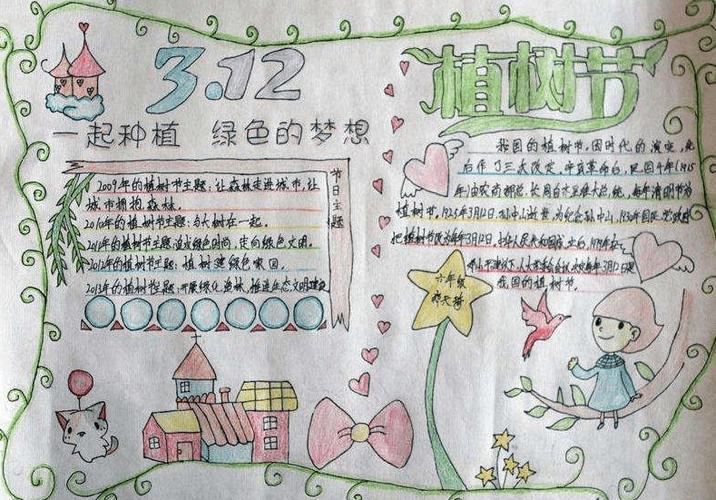 3.12
植树节
一起种植 绿色的梦想
节日主题
2009年的植树节主题:让森林走进城市,让
城市拥抱森林。
2010年的植树节主题:与长树在一起。
2011年的植树节主题 追求绿色时尚,走向绿色文明。
2012年的植树节主题:植树建绿色家园。
2013年的植树节主题:开展绿化造林,推进生态文明建设
我国的植树节,因时代的演变,先
后作了三次改定,辛亥革命后,民国4年(1915
年)由农商部总长周自齐呈准大总统,每年清明节为
植树节,1925年3月12日,孙中山逝世,为纪念孙中山,1930年国民党政府
把植树节改为每年3月12日,中华人民共和国成立后,1979年
人大常委会 每年3月12日
我国的植树节。
六年级